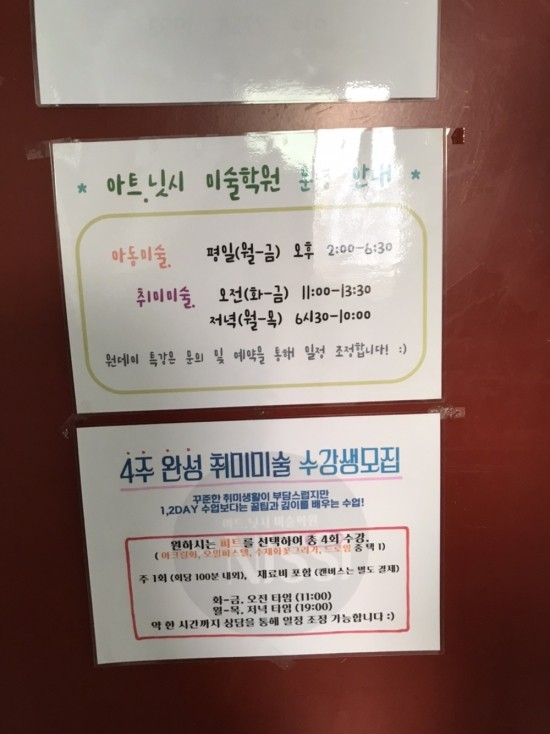 * 아트.닛시 미술학원 운영 안내 *
아동미술. 평일(월-금) 오후 2:00-6:30
취미미술. 오전(화-금) 11:00-13:30
저녁(월-목) 6시30-10:00
원데이 특강은 문의 및 예약을 통해 일정 조정합니다! :)
4주 완성 취미미술 수강생모집
꾸준한 취미생활이 부담스럽지만
1,2DAY 수업보다는 꿀팁과 깊이를 배우는 수업!
아트.닛시 미술학원
NISSI
원하시는 파트를 선택하여 총 4회 수강.
( 아크릴화, 오일파스텔, 수채화꽃그리기, 드로잉 중 택 1)
주 1회 (회당 100분 내외), 재료비 포함 (캔버스는 별도 결제)
화-금. 오전 타임 (11:00)
월-목. 저녁 타임 (19:00)
약 한 시간까지 상담을 통해 일정 조정 가능합니다 :)